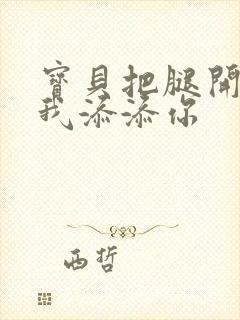 寶貝把腿開
我添添你
西哲